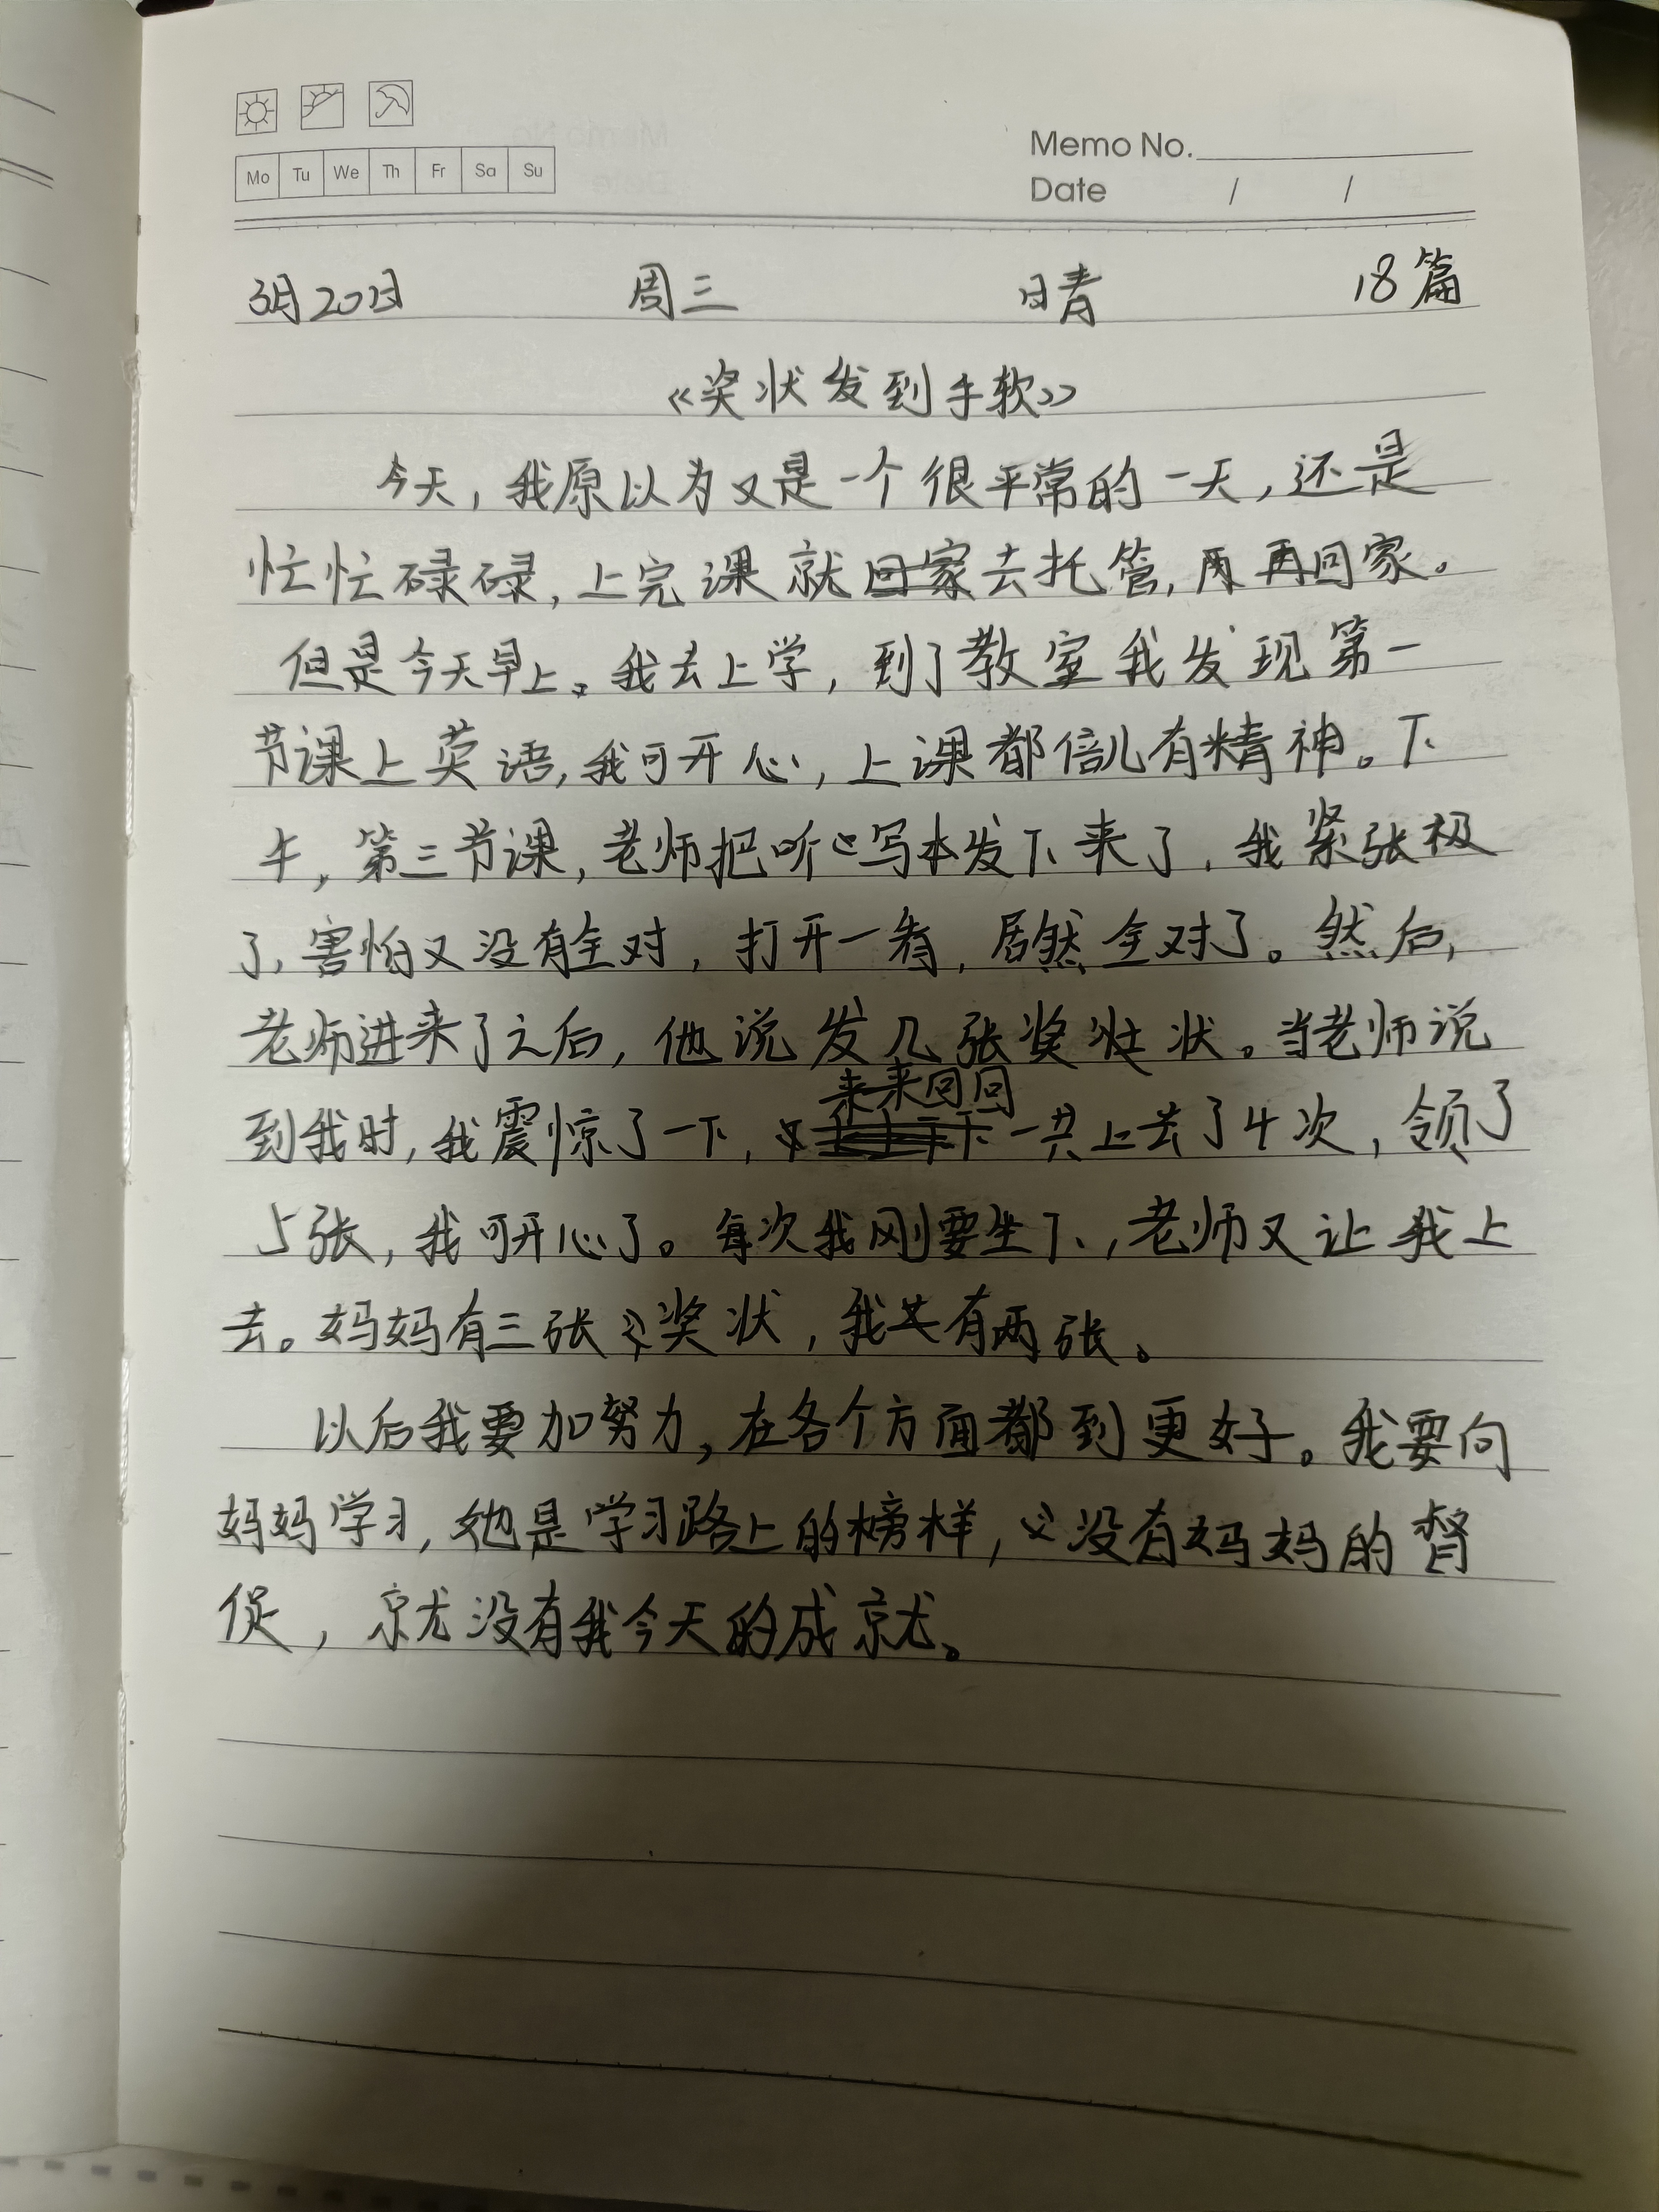 Memo No.
Mo Tu We Th Fr Sa Su
Date / /
3月20日 周三 晴 18篇
《奖状发到手软》
今天,我原以为又是一个很平常的一天,还是
忙忙碌碌,上完课就去托管,再回家。
但是今天早上。我去上学,到了教室我发现第一
节课上英语,我可开心,上课都倍儿有精神。下
午,第三节课,老师把听写本发下来了,我紧张极
了,害怕又没有全对,打开一看,居然全对了。然后,
老师进来了之后,他说发几张奖状。当老师说
来来回回
到我时,我震惊了一下,一共上去了4次,领了
5张,我可开心了。每次我刚要坐下,老师又让我上
去。妈妈有三张奖状,我共有两张。
以后我要加努力,在各个方面都到更好。我要向
妈妈学习,她是学习路上的榜样,没有妈妈的督
促,就没有我今天的成就。